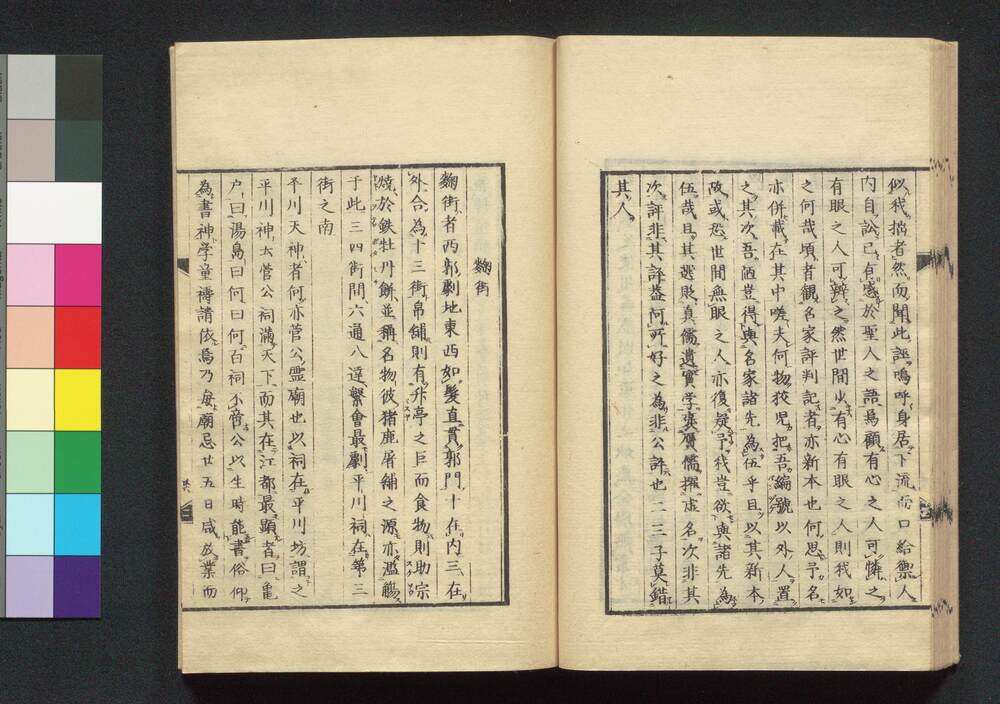 似我揣者然而聞此誣嗚呼身居下流而口給禦人
内自訟已有感於聖人之語焉顧有心之人可憐之
有眼之人可辨之然世間少有心有眼之人則我如
之何哉頃者観名家評判記者亦新本也何思予名
亦併載在其中嗟夫何物狡児把吾編號以外人置
之其次吾陋豈得與名家諸先為伍乎且以其新本
故或恐世間無眼之人亦復疑予我豈欲與諸先為
伍哉且其選貶真儒遺實学褒贋儒撰虚名次非其
次評非其評蓋阿所好之為非公評也二三子莫錯
其人
麴街
麴街者西郭劇地東西如髮直貫郭門十在内三在
外合為十三街帛舗則有升亭之巨而食物則助宗
燒於鉄牡丹餅並稱名物彼猪鹿屠舗之源亦濫觴
于此三四街間六通八達繁會最劇平川祠在第三
街之南
平川天神者何亦菅公霊廟也以祠在平川坊謂之
平川神云菅公祠満天下而其在江都最顕者曰亀
戸曰湯島曰何曰何百祠不啻公以生時能書俗仰
為書神学童禱請依焉乃毎廟忌廿五日咸放業而